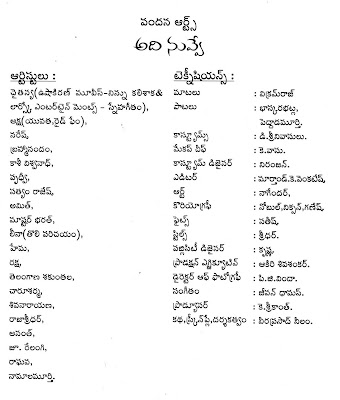 వందన ఆర్ట్స్
అది నువ్వే
ఆర్టిస్టులు :
చైతన్య(ఉషాకిరణ్ మూవీస్-నిన్ను కలిశాక&
లార్కో ఎంటర్‌టైన్ మెంట్స్ - స్నేహగీతం),
అక్ష(యువత,రైడ్ ఫేం),
నరేష్,
బ్రహ్మానందం,
కాశీ విశ్వనాథ్,
పృథ్వీ,
సత్యం రాజేష్,
అమిత్,
మాష్టర్ భరత్,
లీనా(తొలి పరిచయం),
హేమ,
రక్ష,
తెలంగాణ శకుంతల,
చారూశర్మ,
శివనారాయణ,
రాజాశ్రీధర్,
అనంత్,
జూ. రేలంగి,
రాఘవ,
నామాలమూర్తి.
టెక్నీషియన్స్ :
మాటలు : విక్రమ్‌రాజ్
పాటలు : భాస్కరభట్ల,
పెద్దాడమూర్తి.
కాస్ట్యూమ్స్ : డి.శ్రీనివాసులు.
మేకప్ చీఫ్ : కె.వాసు.
కాస్ట్యూమ్ డిజైనర్ : నిరంజన్.
ఎడిటర్ : మార్తాండ్.కె.వెంకటేష్,
ఆర్ట్ : నాగేందర్,
కొరియోగ్రఫీ : నోబుల్,నిక్సన్,గణేష్,
ఫైట్స్ : సతీష్,
స్టిల్స్ : శ్రీధర్.
పబ్లిసిటీ డిజైనర్ : కృష్ణ,
ప్రొడక్షన్ ఎగ్జిక్యూటివ్ : ఆకిరి శివశంకర్.
డైరెక్టర్ ఆఫ్ ఫొటోగ్రఫీ : పి.జి.విందా.
సంగీతం : జీవన్ థామస్.
ప్రొడ్యూసర్ : కె.శ్రీకాంత్.
కథ,స్క్రీన్‌ప్లే,దర్శకత్వం : వీరప్రసాద్ నీలం.